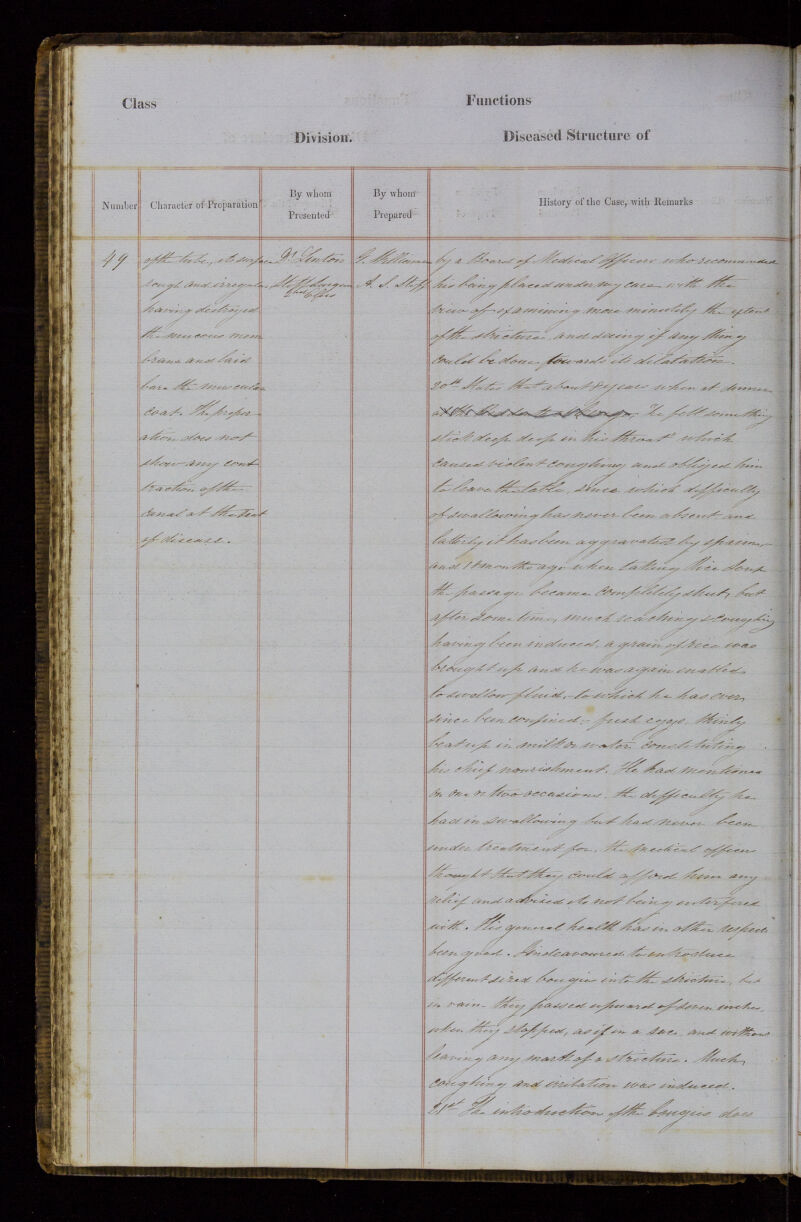 Class
Functions
Division.
Diseased Structure of
Number
Character of Preparation
By whom
Presented
By whom
Prepared
History of the Case, with Remarks
49
of the tube, its surface
rough and irregular
having destroyed
the mucous mem
brane and laid
bare the muscular
coat. The prepar
ation does not
show any cont
raction of the
canal at the seat
of disease.
Dr Linton
Staff Surgeon
2nd Class
G. Williamson
A. S. Staff
by a Board of Medical Officers who recommended
his being placed under my care with the
view of examining more minutely the extent
of the stricture and seeing if any thing
could be done towards its dilatation.
20th States that about 8 years when at dinner
He felt something
stick deep deep in his throat which
caused violent coughing and obliged him
to leave the table, since which difficulty
of swallowing has never been absent and
latterly it has been aggravated by spasm
and 18 months ago when taking rice soup
the passage became completely shut, but
after some time, much reaching & coughing
having been induced, a grain of rice was
brought up and he was again enabled
to swallow fluid, to which he has ever
since been confined - fresh eggs thinly
beat up in milk or water constituting
his chief nourishment. He had mentioned
on one or two occasions the difficulty he
had in swallowing but had never been
under treatment for, the medical officers
thought that they could afford him any
relief and advised its not being interfered
with. His general health has in other respects
been good. Endeavoured to introduce
different sized bougies into the stricture, but
in vain they passed upward of seven inches,
when they stopped, as if in a sac, and without
leaving any mark of a stricture. Much
coughing and irritation was induced.
21st The introduction of the bougies does